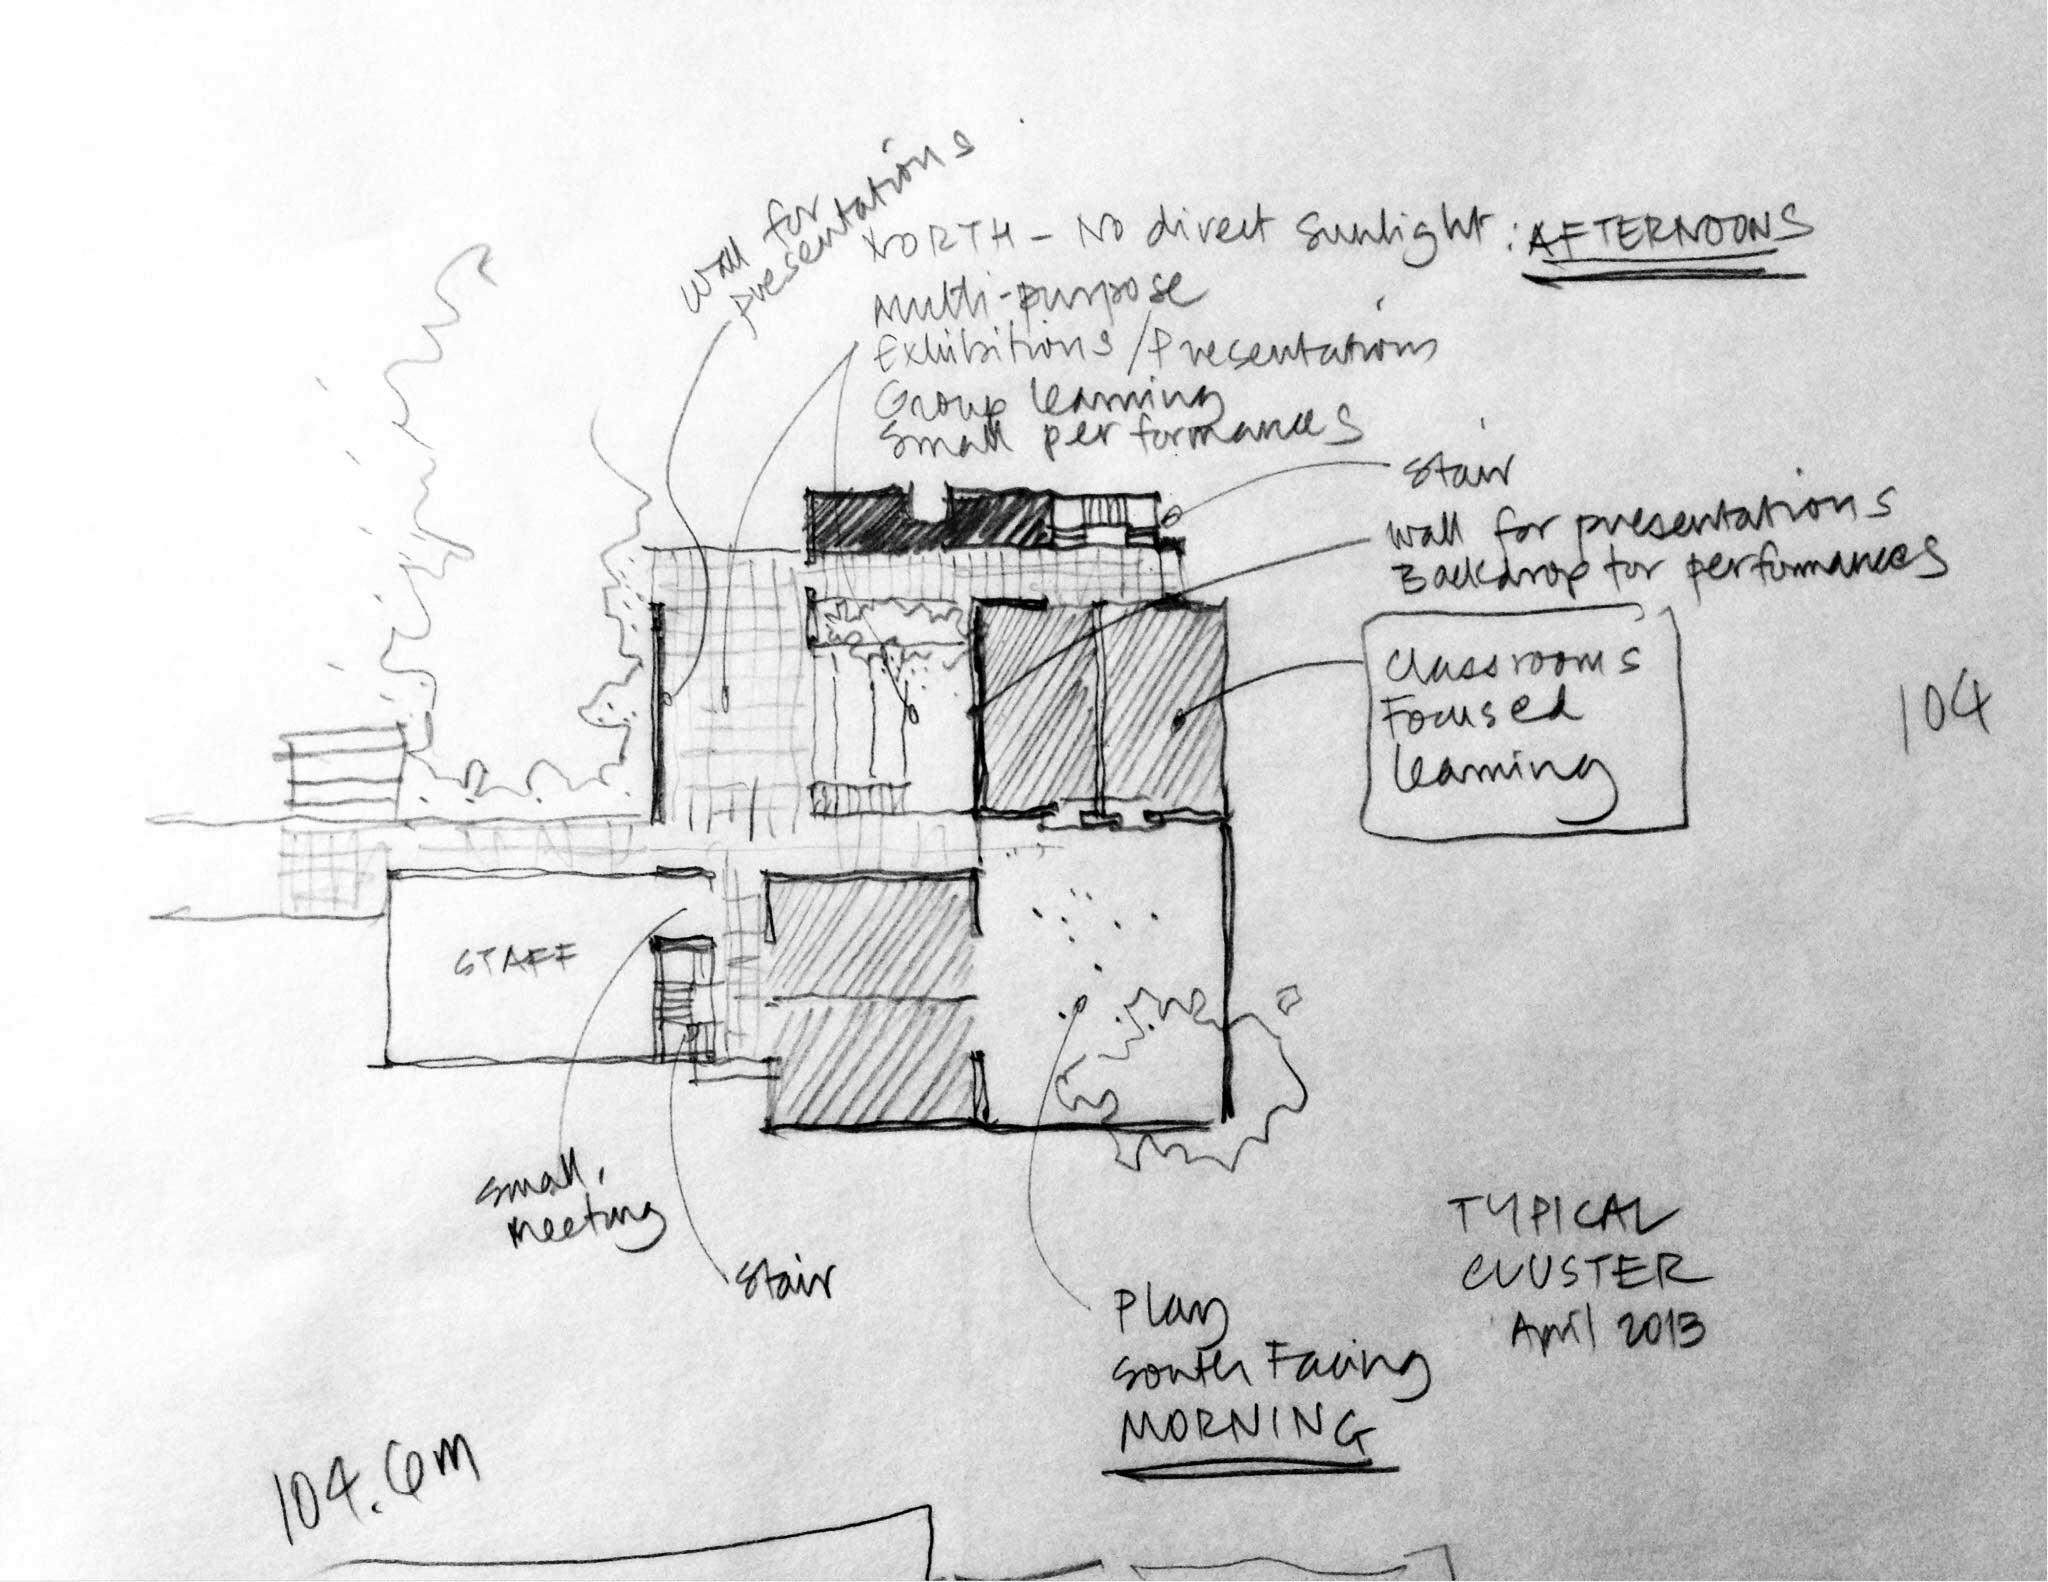 wall for
presentations
NORTH - No direct sunlight : AFTERNOONS
Multi-purpose
Exhibitions / Presentations
Group learning
Small performances
Stair
wall for presentations
Backdrop for performances
Classrooms
Focused
learning
104
STAFF
small
meeting
Stair
Play
South Facing
MORNING
TYPICAL
CLUSTER
April 2013
104.6m